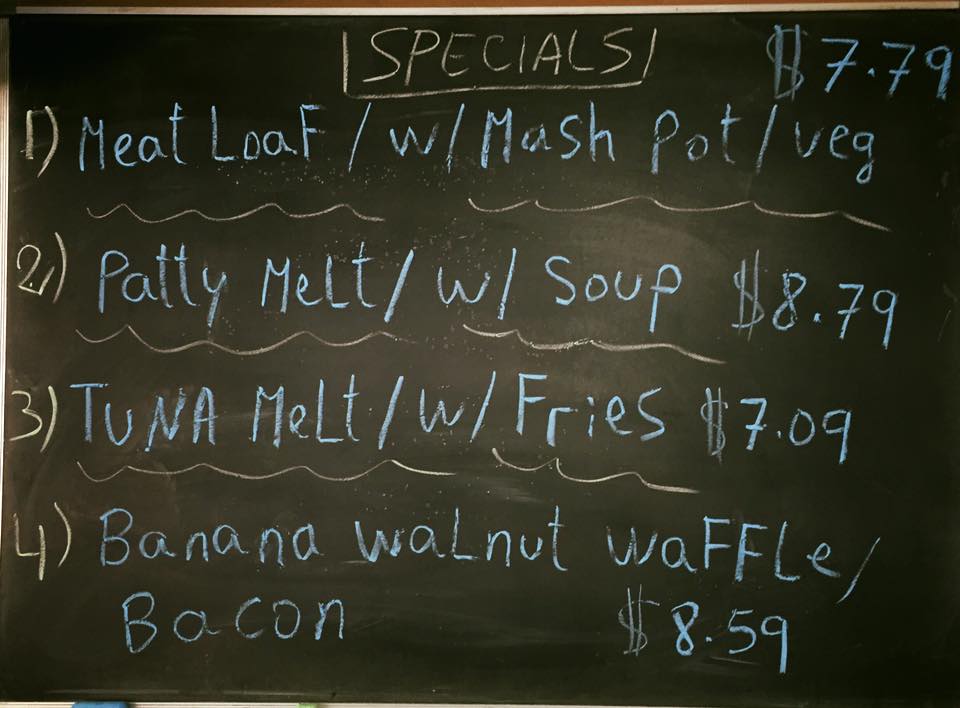 SPECIALS $7.79
1) Meat Loaf / w/ Mash Pot / veg
2) Patty Melt / w/ Soup $8.79
3) TUNA Melt / w/ Fries $7.09
4) Banana walnut waffle /
Bacon $8.59